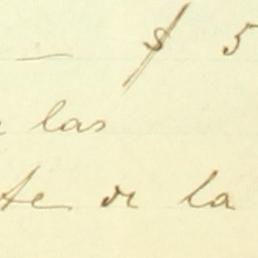 — $ 5
las
te de la